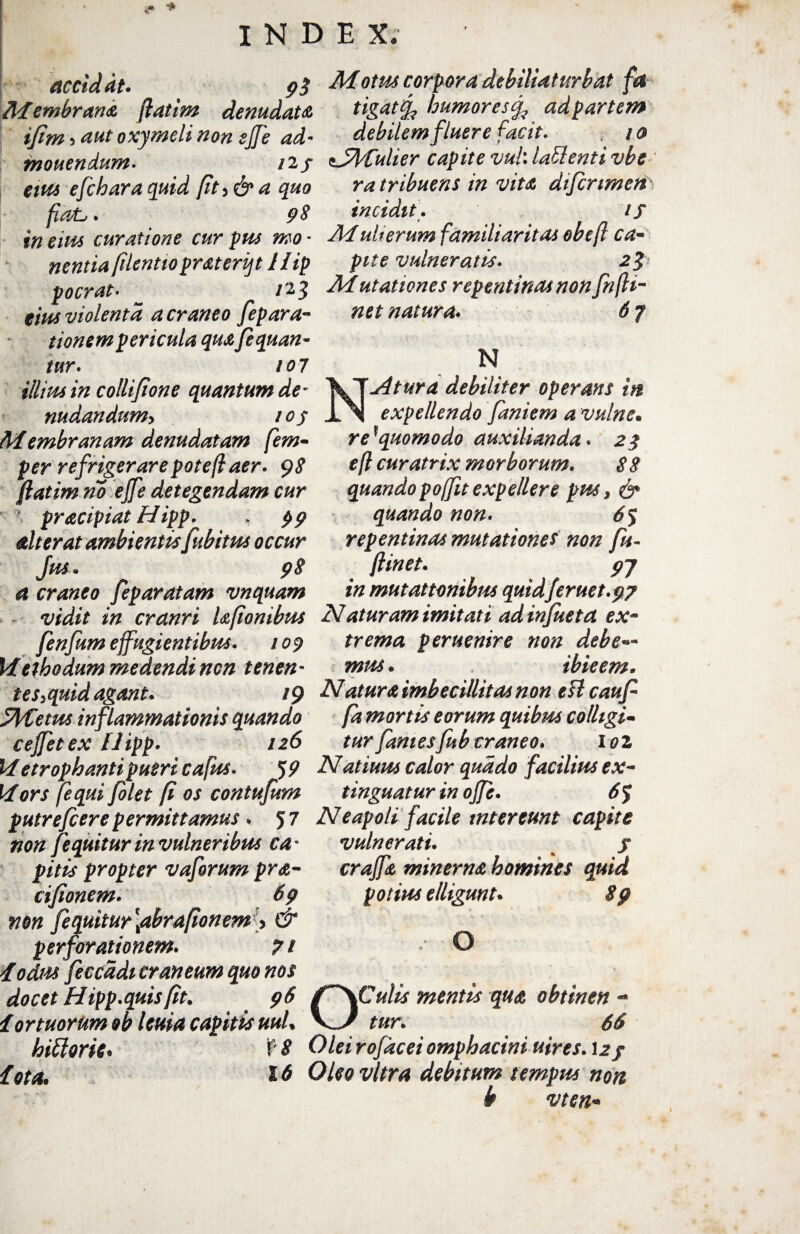 INDEX.
accidat. 93
Membranæ ſtatim denudatæ
ipſim, aut oxymeli non eſſe ad-
mouendum. 125
eius eſchara quid ſit, & a quo
fiat. 98
in eius curatione cur pus mo-
nentia ſilentio præterijt Hip
pocrat. 123
eius violenta a craneo ſepara-
tionem pericula quæ ſequan-
tur. 107
illius in colliſione quantum de-
nudandum, 105
Membranam denudatam ſem-
per refrigerare poteſt aer. 98
ſtatim nō eſſe detegendam cur
præcipiat Hipp. 99
alterat ambientis ſubitus occur
ſus. 98
a craneo ſeparatam vnquam
vidit in cranri læſionibus
ſenſum effugientibus. 109
Methodum medendi non tenen-
tes, quid agant. 19
Metus inflammationis quando
ceſſet ex Hipp. 126
Metrophanti pueri caſus. 59
Mors ſequi ſolet ſi os contuſum
putreſcere permittamus. 57
non ſequitur in vulneribus ca-
pitis propter vaſorum præ-
ciſionem. 69
non ſequitur abraſionem, &
perforationem. 71
Modus ſeccādi craneum quo nos
docet Hipp. quis ſit. 96
Mortuorum ob leuia capitis uul.
hiſtorię. 58
Mota. 16
Motus corpora debilia turbat fa
tigatq́; humoresq́; ad partem
debilem fluere facit. 10
Mulier capite vul. lactenti vbe
ra tribuens in vitæ diſcrimen
incidit. 15
Mulierum familiaritas obeſt ca-
pite vulneratis. 23
Mutationes repentinas non ſuſti-
net natura. 67
N
NAtura debiliter operans in
expellendo ſaniem a vulne.
re quomodo auxilianda. 23
eſt curatrix morborum. 88
quando poſſit expellere pus, &
quando non. 65
repentinas mutationes non ſu-
ſtinet. 97
in mutationibus quid ſeruet. 97
Naturam imitati ad inſueta ex-
trema peruenire non debe-
mus. ibieem.
Naturæ imbecillitas non eſt cauſ-
ſa mortis eorum quibus colligi-
tur ſanies ſub craneo. 102
Natiuus calor quādo facilius ex-
tinguatur in oſſe. 65
Neapoli facile intereunt capite
vulnerati. 5
craſſæ minernæ homines quid
potius elligunt. 89
O
OCulis mentis quæ obtinen-
tur. 66
Olei roſacei omphacini uires. 125
Oleo vltra debitum tempus non
b vten-